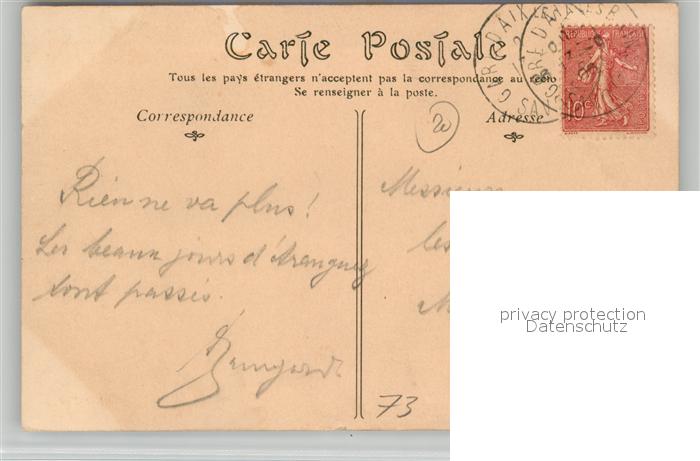 Carte Postale
Tous les pays étrangers n'acceptent pas la correspondance au recto
Se renseigner à la poste.
Correspondance
Adresse
REPUBLIQUE FRANÇAISE
10c
20
Rien ne va plus!
Les beaux jours d'Aranguez
sont passés.
Messieurs
les
M
73
privacy protection
Datenschutz